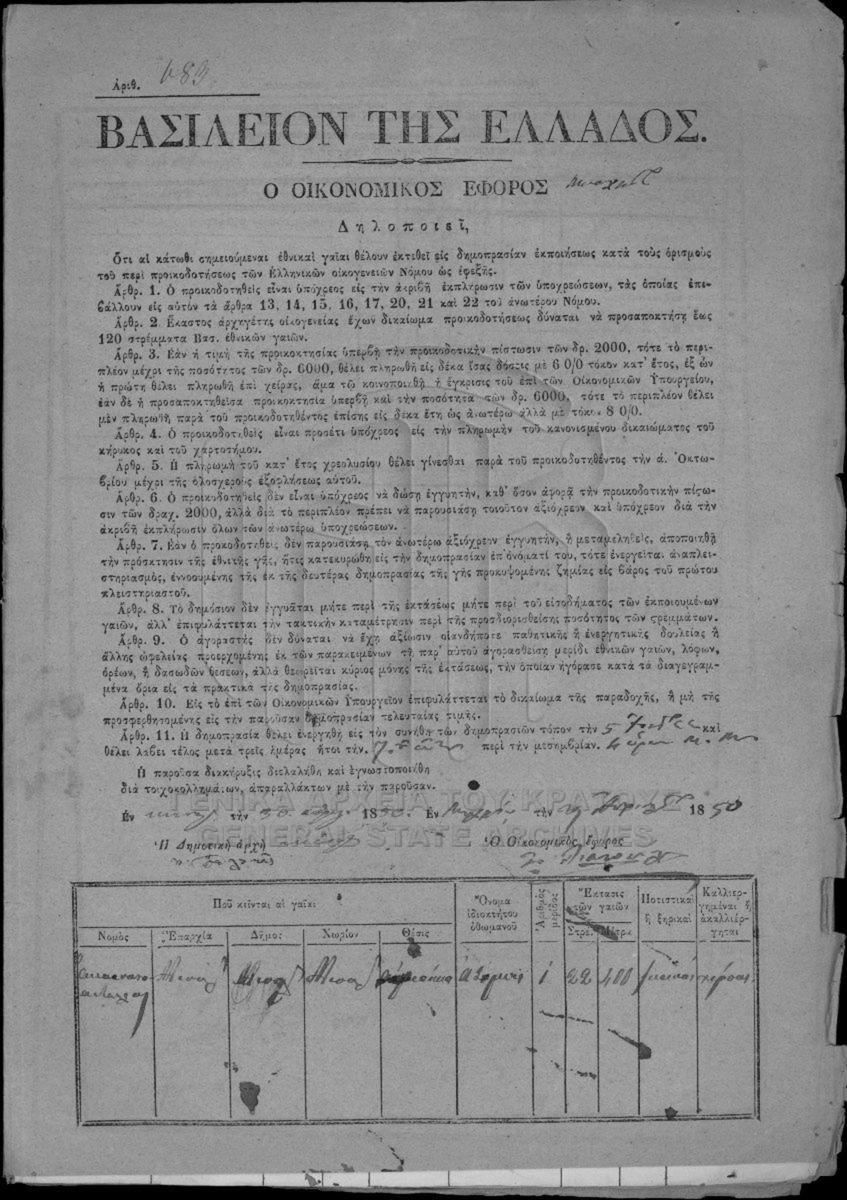 Ἀριθ. 683
ΒΑΣΙΛΕΙΟΝ ΤΗΣ ΕΛΛΑΔΟΣ.
Ο ΟΙΚΟΝΟΜΙΚΟΣ ΕΦΟΡΟΣ
Δηλοποιεῖ,
Ὅτι αἱ κάτωθι σημειούμεναι ἐθνικαὶ γαῖαι θέλουν ἐκτεθεῖ εἰς δημοπρασίαν ἐκποιήσεως κατὰ τοὺς ὁρισμοὺς
τοῦ περὶ προικοδοτήσεως τῶν Ἑλληνικῶν οἰκογενειῶν Νόμου ὡς ἐφεξῆς.
Ἄρθρ. 1. Ὁ προικοδοτηθεὶς εἶναι ὑπόχρεος εἰς τὴν ἀκριβῆ ἐκπλήρωσιν τῶν ὑποχρεώσεων, τὰς ὁποίας ἐπι-
βάλλουν εἰς αὐτὸν τὰ ἄρθρα 13, 14, 15, 16, 17, 20, 21 καὶ 22 τοῦ ἀνωτέρου Νόμου.
Ἄρθρ. 2. Ἕκαστος ἀρχηγέτης οἰκογενείας ἔχων δικαίωμα προικοδοτήσεως δύναται νὰ προσαποκτήσῃ ἕως
120 στρέμματα Βασ. ἐθνικῶν γαιῶν.
Ἄρθρ. 3. Ἐὰν ἡ τιμὴ τῆς προικοκτησίας ὑπερβῇ τὴν προικοδοτικὴν πίστωσιν τῶν δρ. 2000, τότε τὸ περι-
πλέον μέχρι τῆς ποσότητος τῶν δρ. 6000, θέλει πληρωθῆ εἰς δέκα ἴσας δόσεις μὲ 6 0/0 τόκον κατ' ἔτος, ἐξ ὧν
ἡ πρώτη θέλει πληρωθῆ ἐπὶ χεῖρας, ἅμα τῷ κοινοποιηθῇ ἡ ἔγκρισις τοῦ ἐπὶ τῶν Οἰκονομικῶν Ὑπουργείου,
ἐὰν δὲ ἡ προσαποκτηθεῖσα προικοκτησία ὑπερβῇ καὶ τὴν ποσότητα τῶν δρ. 6000, τότε τὸ περιπλέον θέλει
μὲν πληρωθῆ παρὰ τοῦ προικοδοτηθέντος ἐπίσης εἰς δέκα ἔτη ὡς ἀνωτέρω ἀλλὰ μὲ τόκον 8 0/0.
Ἄρθρ. 4. Ὁ προικοδοτηθεὶς εἶναι προσέτι ὑπόχρεος εἰς τὴν πληρωμὴν τοῦ κανονισμένου δικαιώματος τοῦ
κήρυκος καὶ τοῦ χαρτοσήμου.
Ἄρθρ. 5. Ἡ πληρωμὴ τοῦ κατ' ἔτος χρεολυσίου θέλει γίνεσθαι παρὰ τοῦ προικοδοτηθέντος τὴν ά. Ὀκτω-
βρίου μέχρι τῆς ὁλοσχεροῦς ἐξοφλήσεως αὐτοῦ.
Ἄρθρ. 6. Ὁ προικοδοτηθεὶς δὲν εἶναι ὑπόχρεος νὰ δώσῃ ἐγγυητὴν, καθ' ὅσον ἀφορᾷ τὴν προικοδοτικὴν πίστω-
σιν τῶν δραχ. 2000, ἀλλὰ διὰ τὸ περιπλέον πρέπει νὰ παρουσιάσῃ τοιοῦτον ἀξιόχρεον καὶ ὑπόχρεον διὰ τὴν
ἀκριβῆ ἐκπλήρωσιν ὅλων τῶν ἀνωτέρω ὑποχρεώσεων.
Ἄρθρ. 7. Ἐὰν ὁ προκοδοτηθεὶς δὲν παρουσιάσῃ τὸν ἀνωτέρω ἀξιόχρεον ἐγγυητὴν, ἢ μεταμεληθεὶς, ἀποποιηθῇ
τὴν πρόσκτησιν τῆς ἐθνικῆς γῆς, ἥτις κατεκυρώθη εἰς τὴν δημοπρασίαν ἐπ' ὀνόματί του, τότε ἐνεργεῖται ἀναπλει-
στηριασμὸς, ἐννοουμένης τῆς ἐκ τῆς δευτέρας δημοπρασίας τῆς γῆς προκυψομένης ζημίας εἰς βάρος τοῦ πρώτου
πλειστηριαστοῦ.
Ἄρθρ. 8. Τὸ δημόσιον δὲν ἐγγυᾶται μήτε περὶ τῆς ἐκτάσεως μήτε περὶ τοῦ εἰσοδήματος τῶν ἐκποιουμένων
γαιῶν, ἀλλ' ἐπιφυλάττεται τὴν τακτικὴν καταμέτρησιν περὶ τῆς προσδιορισθείσης ποσότητος τῶν στρεμμάτων.
Ἄρθρ. 9. Ὁ ἀγοραστὴς δὲν δύναται νὰ ἔχῃ ἀξίωσιν οἱανδήποτε παθητικῆς ἢ ἐνεργητικῆς δουλείας ἢ
ἄλλης ὠφελείας προερχομένης ἐκ τῶν παρακειμένων τῇ παρ' αὐτοῦ ἀγορασθείσῃ μερίδι ἐθνικῶν γαιῶν, λόφων,
ὀρέων, ἢ δασωδῶν θέσεων, ἀλλὰ θεωρεῖται κύριος μόνης τῆς ἐκτάσεως, τὴν ὁποίαν ἠγόρασε κατὰ τὰ διαγεγραμ-
μένα ὅρια εἰς τὰ πρακτικὰ τῆς δημοπρασίας.
Ἄρθρ. 10. Εἰς τὸ ἐπὶ τῶν Οἰκονομικῶν Ὑπουργεῖον ἐπιφυλάττεται τὸ δικαίωμα τῆς παραδοχῆς, ἢ μὴ τῆς
προσφερθησομένης εἰς τὴν παροῦσαν δημοπρασίαν τελευταίας τιμῆς.
Ἄρθρ. 11. Ἡ δημοπρασία θέλει ἐνεργηθῆ εἰς τὸν συνήθη τῶν δημοπρασιῶν τόπον τὴν 5 καὶ
θέλει λάβει τέλος μετὰ τρεῖς ἡμέρας ἤτοι τὴν 7 περὶ τὴν μεσημβρίαν.
Ἡ παροῦσα διακήρυξις διελαλήθη καὶ ἐγνωστοποιήθη
διὰ τοιχοκολλημάτων, ἀπαραλλάκτων μὲ τὴν παροῦσαν.
ΓΕΝΙΚΑ ΑΡΧΕΙΑ ΤΟΥ ΚΡΑΤΟΥΣ
Ἐν τὴν 30 1850. Ἐν τὴν 1850
GENERAL STATE ARCHIVES
Ἡ Δημοτικὴ ἀρχὴ Ὁ Οἰκονομικὸς Ἔφορος
Ποῦ κεῖνται αἱ γαῖαι Ὄνομα ἰδιοκτήτου ὀθωμανοῦ Ἀριθμὸς μερίδος Ἔκτασις τῶν γαιῶν Ποτιστικαὶ ἢ ξηρικαὶ Καλλιεργημέναι ἢ ἀκαλλιέργηται
Νομὸς Ἐπαρχία Δῆμος Χωρίον Θέσις Στρέ. Μέτρα
1 22 400